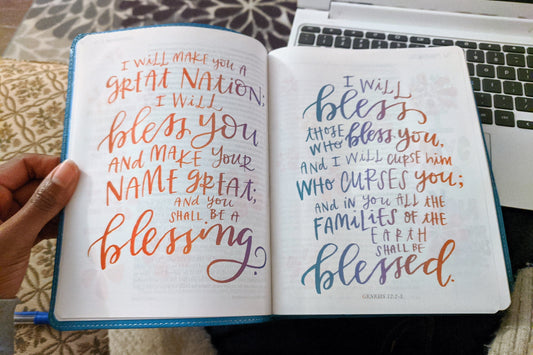 I WILL MAKE YOU A
GREAT NATION;
I WILL
bless you
AND MAKE YOUR
NAME GREAT;
AND YOU
SHALL BE A
blessing.
I WILL
bless
THOSE
WHO bless YOU,
AND I WILL CURSE HIM
WHO CURSES YOU;
AND IN YOU ALL THE
FAMILIES OF THE
EARTH
SHALL BE
blessed.
GENESIS 12:2-3